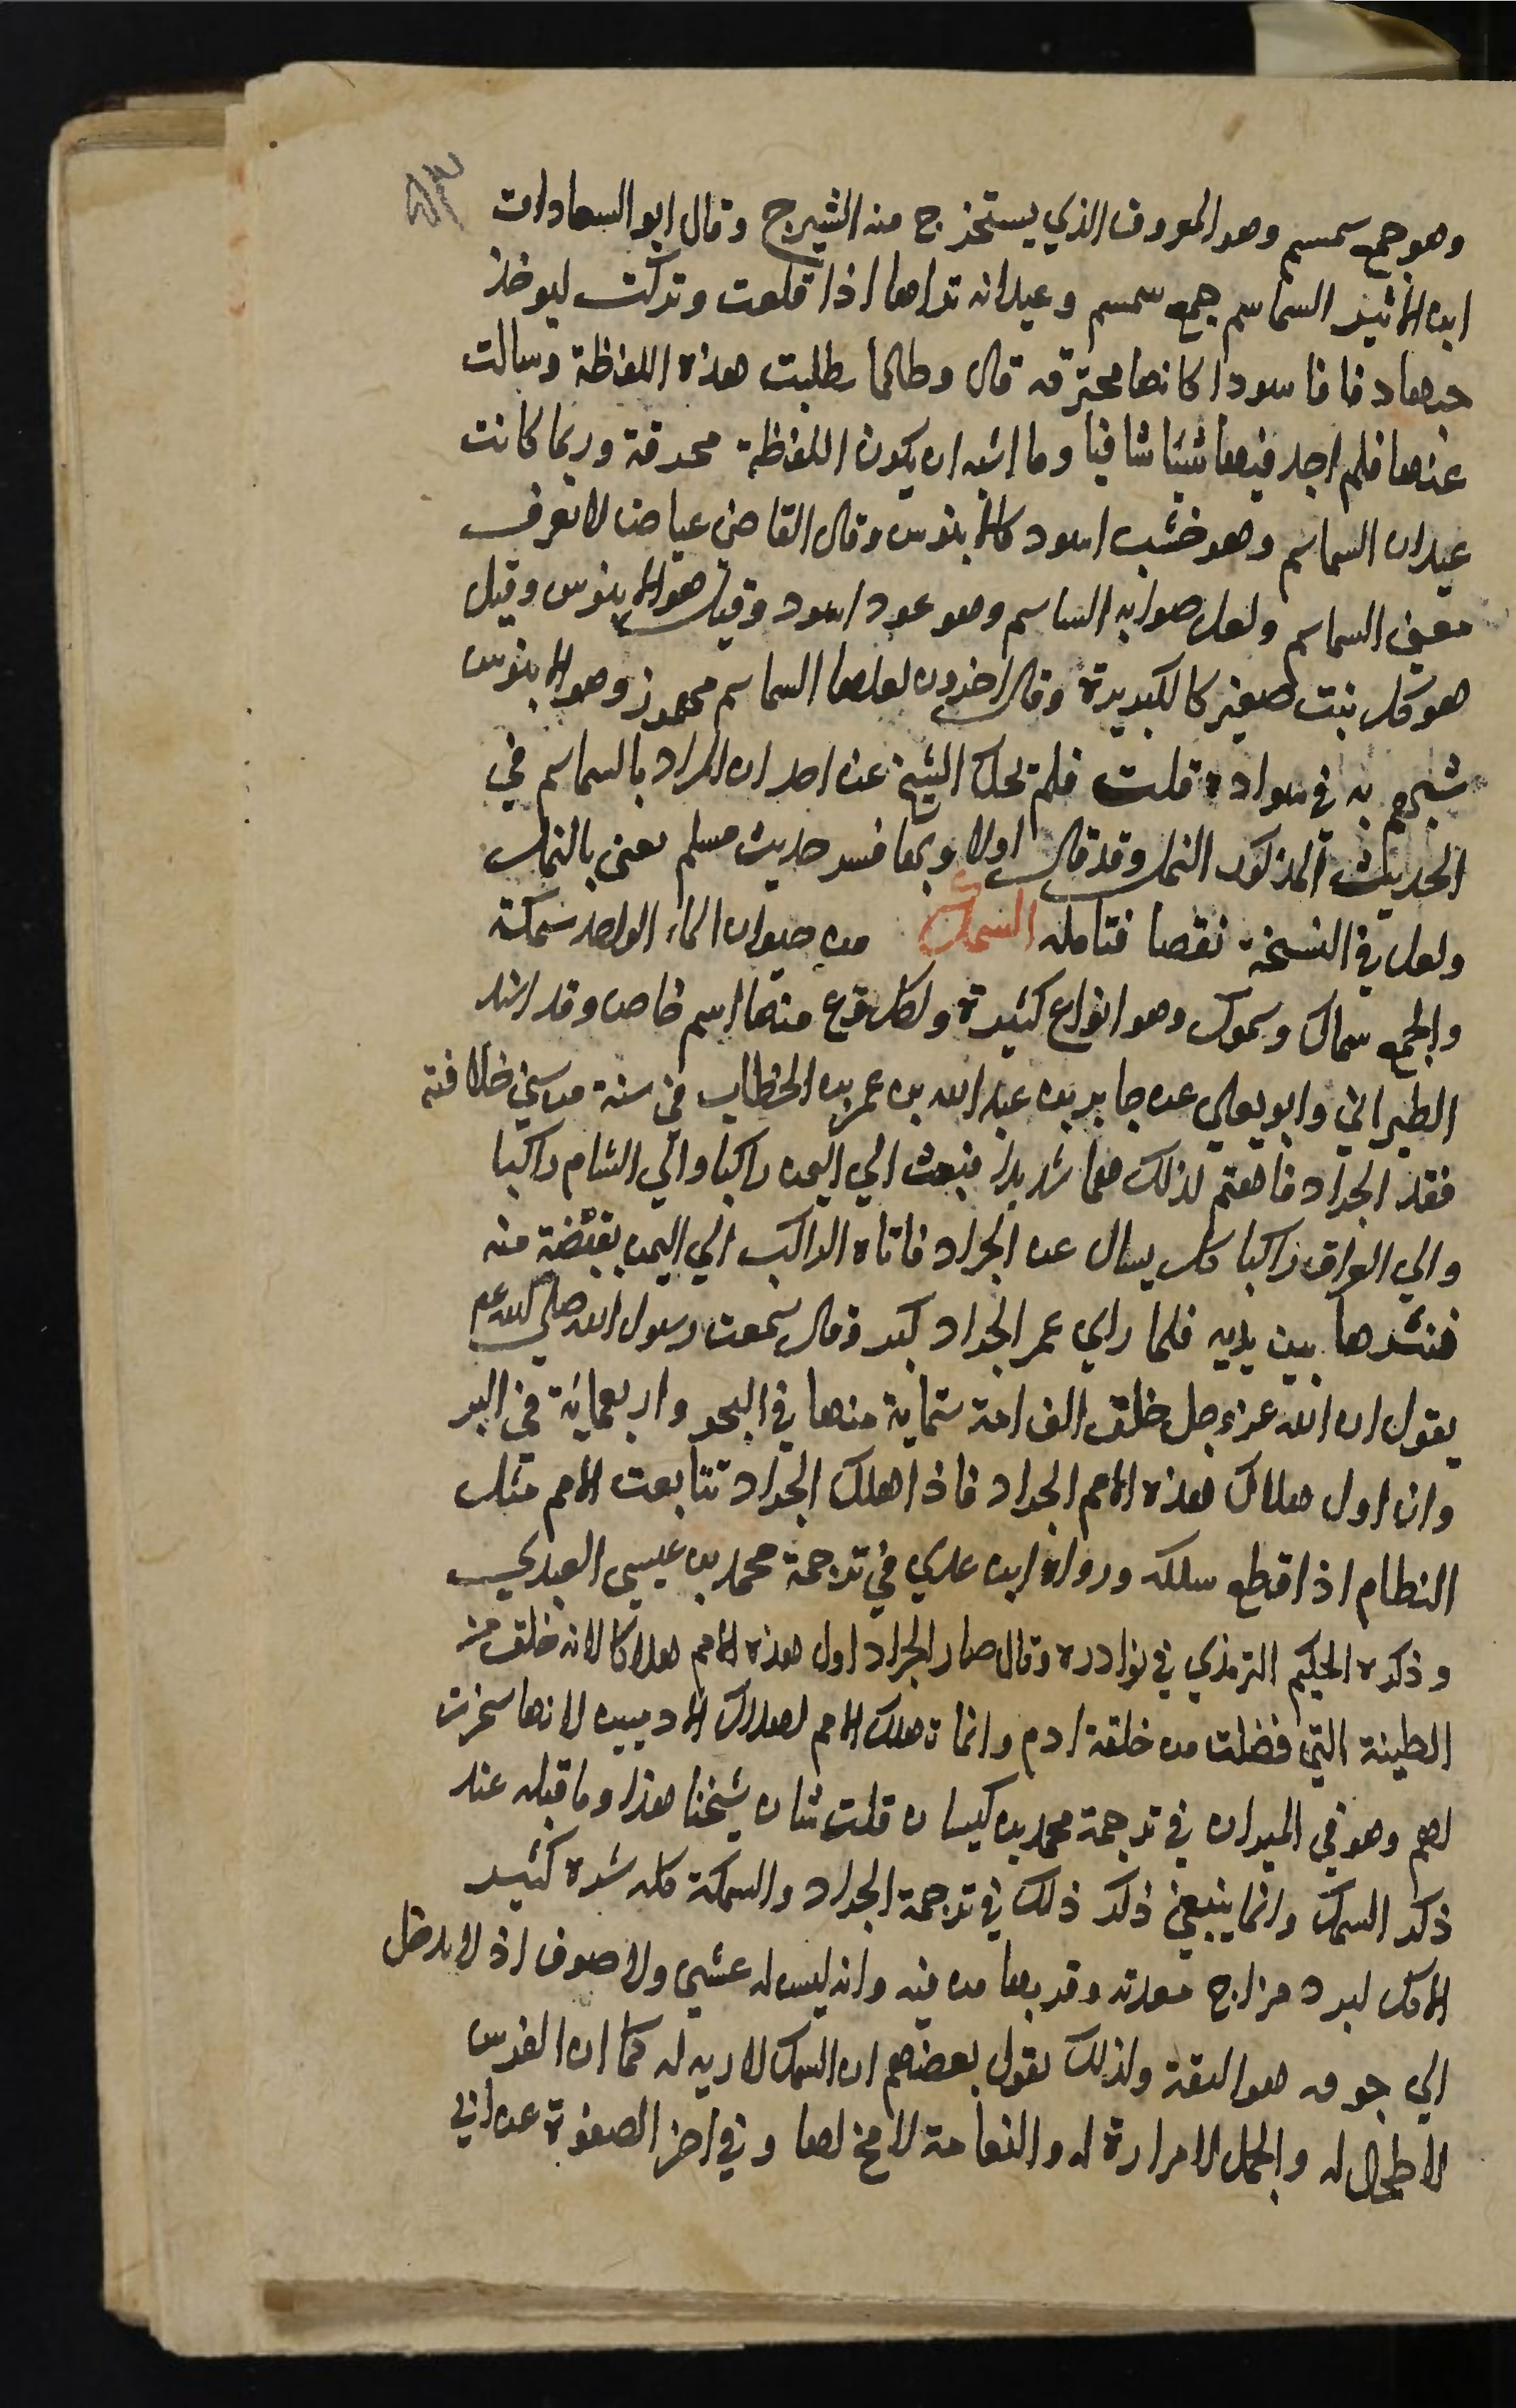 ٨٣
وهو جمع سمسم وهو المعروف الذي يستخرج منه الشيرج وقال ابو السعادات
ابن الاثير السماسم جمع سمسم وعيدانه تراها اذا قلعت وتركت ليوخذ
حبها دقاقا سودا كانها محترقه قال وطالما طلبت هذه اللفظة وسالت
عنها فلم اجد فيها شيئا شافيا وما اشبه ان يكون اللفظة محرفة وربما كانت
عيدان السماسم وهو خشب اسود كالابنوس وقال القاضي عياض لا نعرف
معنى السماسم ولعل صوابه الساسم وهو عود اسود وقيل هو الابنوس وقيل
هو كل نبت صغير كالكبديرة وقال اخرون لعلها السماسم مهموز وهو الابنوس
شبههم به في سواده قلت فلم يحك الشيخ عن احد ان المراد بالسماسم في
الحديث المذكور النمل وقد قال اولا وبها فسر حديث مسلم يعنى بالنمل
ولعل في النسخة نقصا فتامله السمك من حيوان الماء الواحد سمكة
والجمع سماك وسموك وهو انواع كثيرة ولكل نوع منها اسم خاص وقد اسند
الطبراني وابو يعلي عن جابر بن عبد الله بن عمر بن الخطاب في سنة من سني خلافته
فقد الجراد فاهتم لذلك هما شديدا فبعث الي اليمن راكبا والي الشام راكبا
والي العراق راكبا كل يسال عن الجراد فاتاه الراكب الي اليمن بقبضة منه
فنشرها بين يديه فلما راي عمر الجراد كبر وقال سمعت رسول الله صلي الله عم
يقول ان الله عز وجل خلق الف امة ستماية منها في البحر واربعمائة في البر
وان اول هلاك هذه الامم الجراد فاذا هلك الجراد تتابعت الامم مثل
النظام اذا قطع سلكه ورواه ابن عدي في ترجمة محمد بن عيسى العبدي
وذكره الحكيم الترمذي في نوادره وقال صار الجراد اول هذه الامم هلاكا لانه خلق من
الطينة التي فضلت من خلقة ادم وانما تهلك الامم لهلاك الادميين لانها سخرت
لهم وهو في الميزان في ترجمة محمد بن كيسان قلت شان شيخنا هذا وما قبله عند
ذكر السمك وانما ينبغي ذكر ذلك في ترجمة الجراد والسمكة كله شره كثير
الاكل لبرد مزاج معدته وقربها من فيه وانه ليس له عشي ولا صوف اذ لا يدخل
الي جوفه هوا البتة ولذلك يقول بعضهم ان السمك لا ريه له كما ان الفرس
لا طحال له والجمل لا مرارة له والنعامة لا مخ لها وفي اخر الصفوة عن ابي